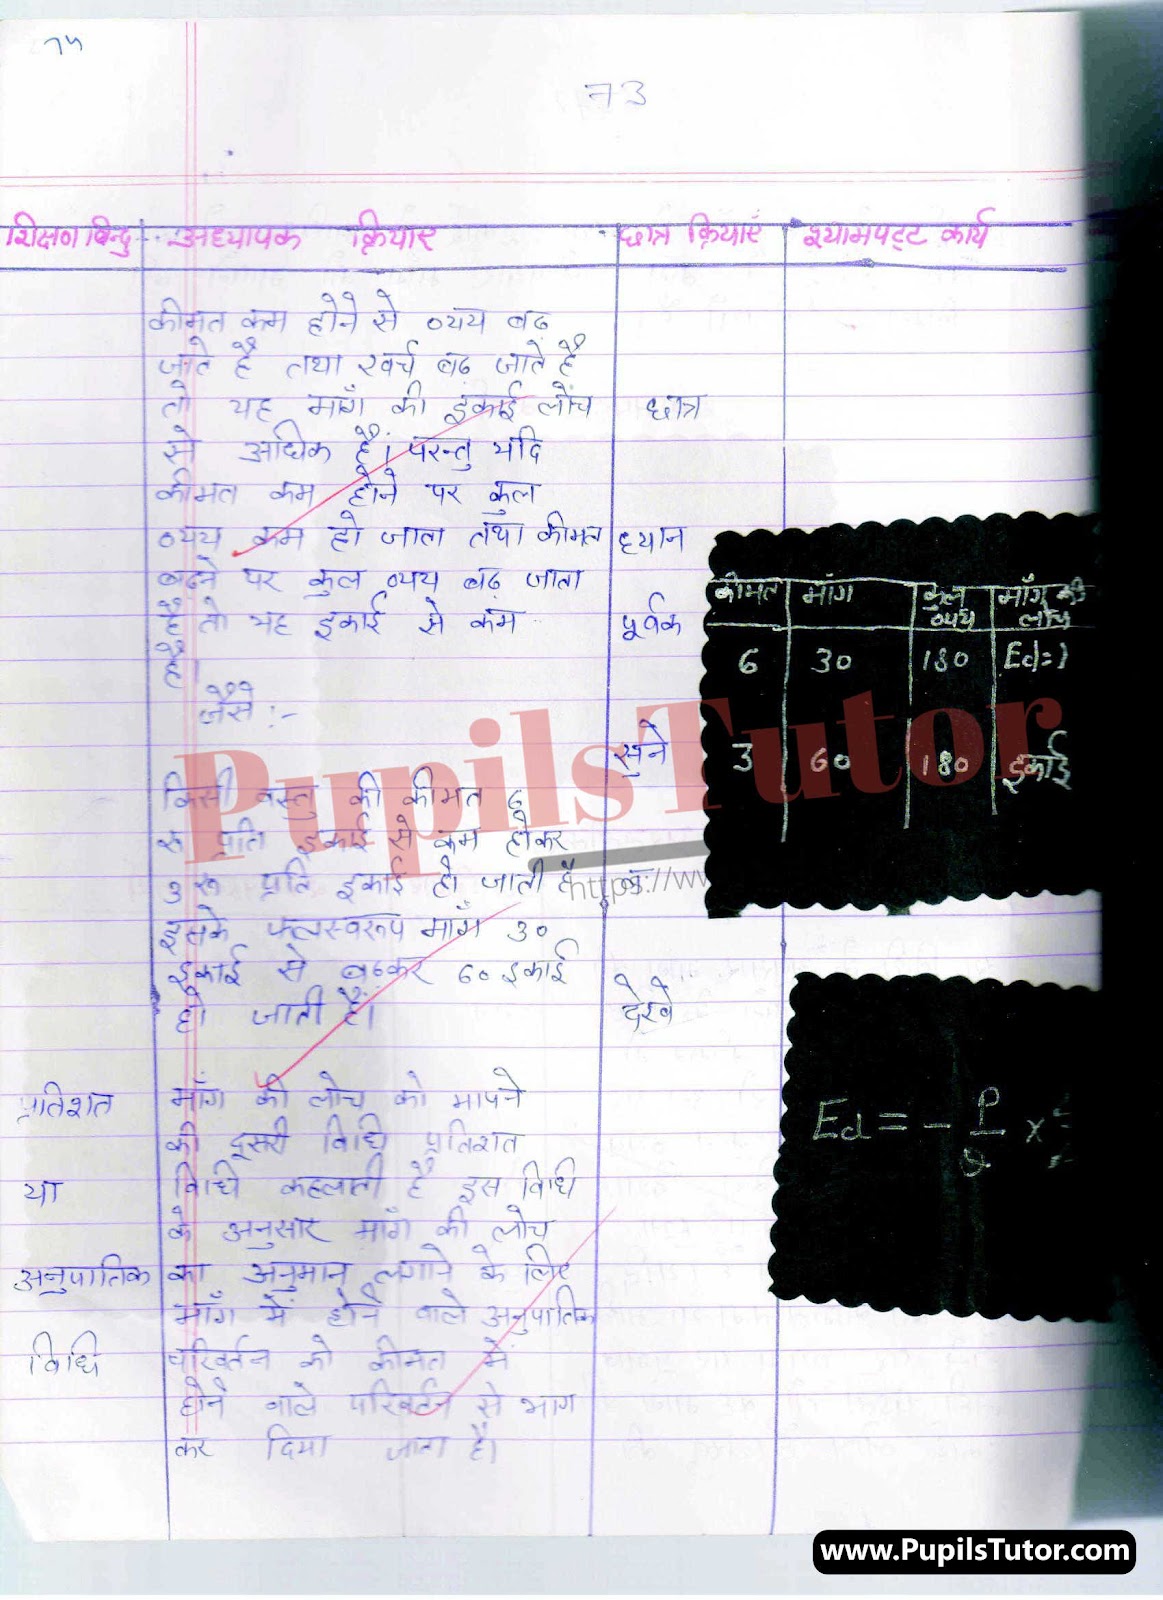 73
शिक्षण बिन्दु अध्यापक क्रियाएं छात्र क्रियाएं श्यामपट्ट कार्य
कीमत कम होने से व्यय बढ
जाते है तथा खर्च बढ जाते है
तो यह माँग की इंकाई लोच
से अधिक है। परन्तु यदि
कीमत कम होने पर कुल
व्यय कम हो जाता तथा कीमत
बढने पर कुल व्यय बढ़ जाता
है तो यह इकाई से कम
है।
जैसे :-
किसी वस्तु की कीमत ६
रू प्रति इकाई से कम होकर
३ रू प्रति इकाई हो जाती है
इसके फलस्वरूप माँग ३०
इकाई से बढकर ६० इकाई
हो जाती है।
छात्र
ध्यान
पूर्वक
सुने
देखे
कीमत माँग कुल व्यय माँग की लोच
6 30 180 Ed=1
3 60 180 इकाई
प्रतिशत
या
अनुपातिक
विधि
माँग की लोच को मापने
की दूसरी विधि प्रतिशत
विधि कहलाती है इस विधि
के अनुसार माँग की लोच
का अनुमान लगाने के लिए
माँग में होने वाले अनुपातिक
परिवर्तन को कीमत में
होने वाले परिवर्तन से भाग
कर दिया जाता है।
Ed = - P/Q ×
PupilsTutor
https://ww
www.PupilsTutor.com